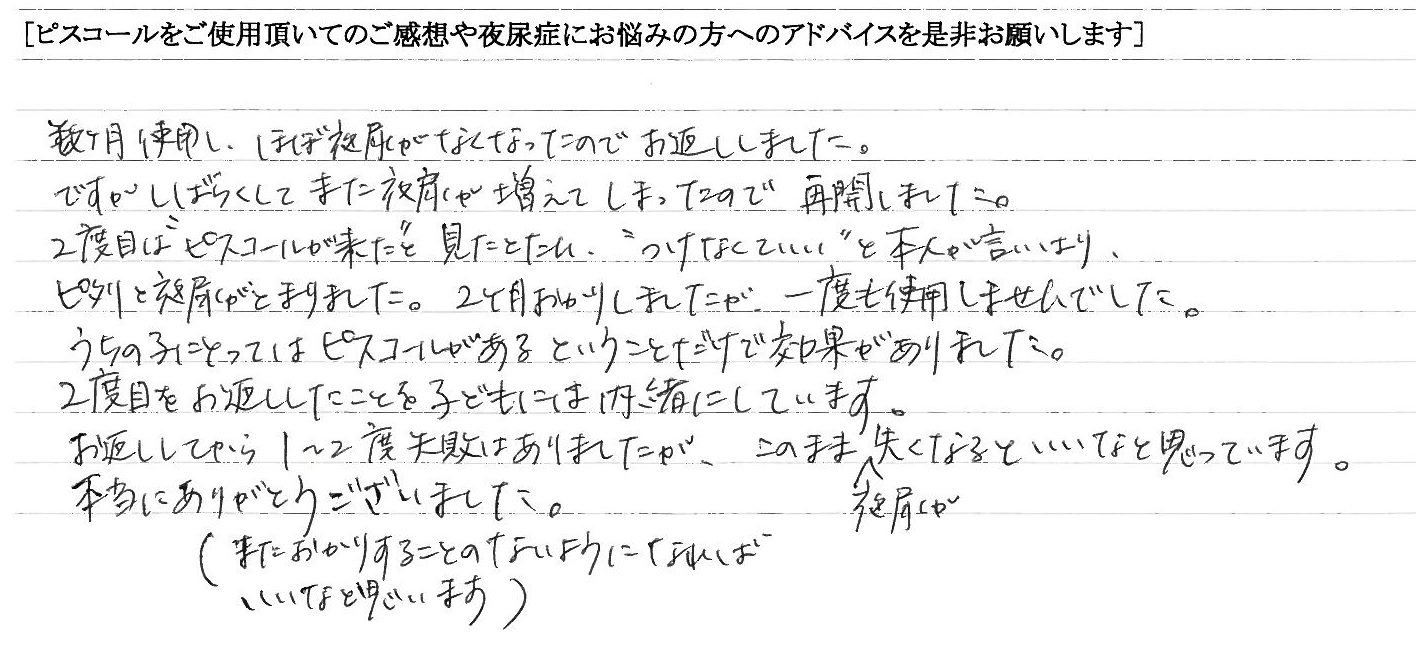 [ピスコールをご使用頂いてのご感想や夜尿症にお悩みの方へのアドバイスを是非お願いします]
数ヶ月使用し、ほぼ夜尿がなくなったのでお返ししました。
ですがしばらくしてまた夜尿が増えてしまったので再開しました。
2度目は"ピスコールが来た"と見たとたん、"つけなくていい"と本人が言いはり、
ピタリと夜尿がとまりました。2ヶ月おかりしましたが、一度も使用しませんでした。
うちの子にとってはピスコールがあるということだけで効果がありました。
2度目をお返ししたことを子どもには内緒にしています。
お返ししてから1〜2度失敗はありましたが、このまま失くなるといいなと思っています。
夜尿が
本当にありがとうございました。
(またおかりすることのないようになれば
いいなと思います)